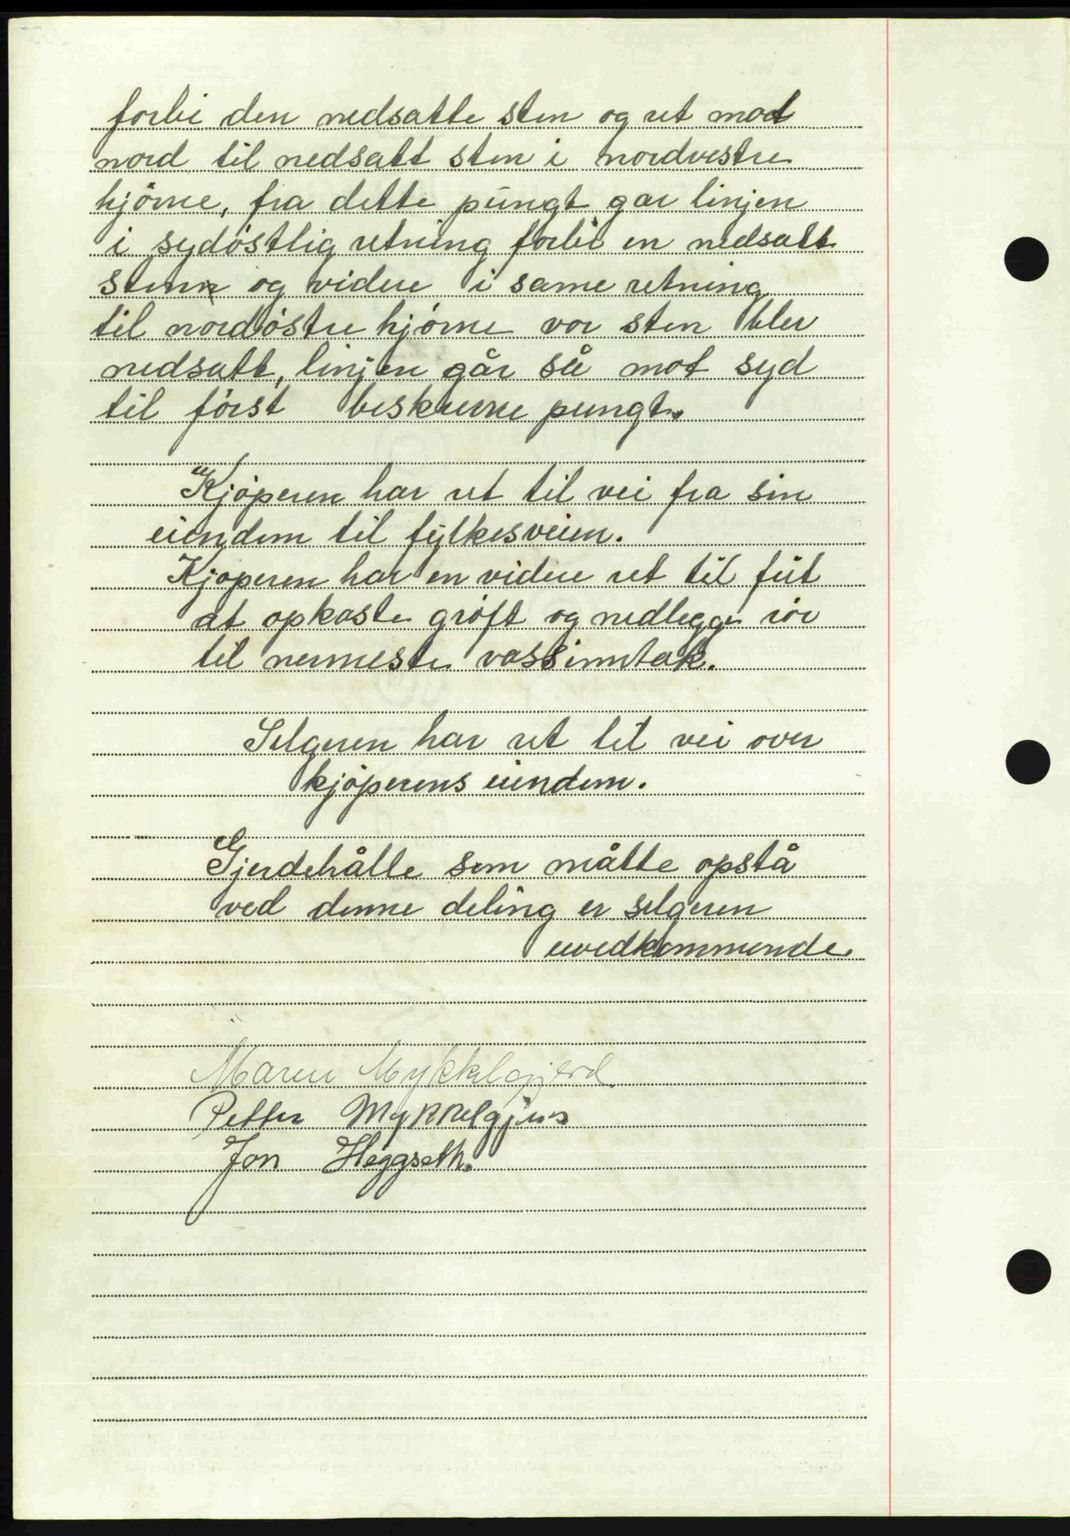 forbi den nedsatte sten og ret mod
nord til nedsatt sten i nordvestre
hjörne, fra dette pungt gar linjen
i sydöstlig retning forbi en nedsatt
sten og videre i same retning
til nordöstre hjörne vor sten blev
nedsatt, linjen går så mot syd
til först beskrevne pungt.
Kjöperen har ret til vei fra sin
eiendom til fylkesveien.
Kjøperen har en videre ret til frit
at opkaste gröft og nedlegge rör
til nermeste vassinntak.
Selgeren har ret til vei over
kjöperens eiendom.
Gjerdehålle som måtte opstå
ved denne deling er selgeren
uvedkommende
Maren Myklelgjerd
Petter Mykkelgjerd
Jon Heggseth.